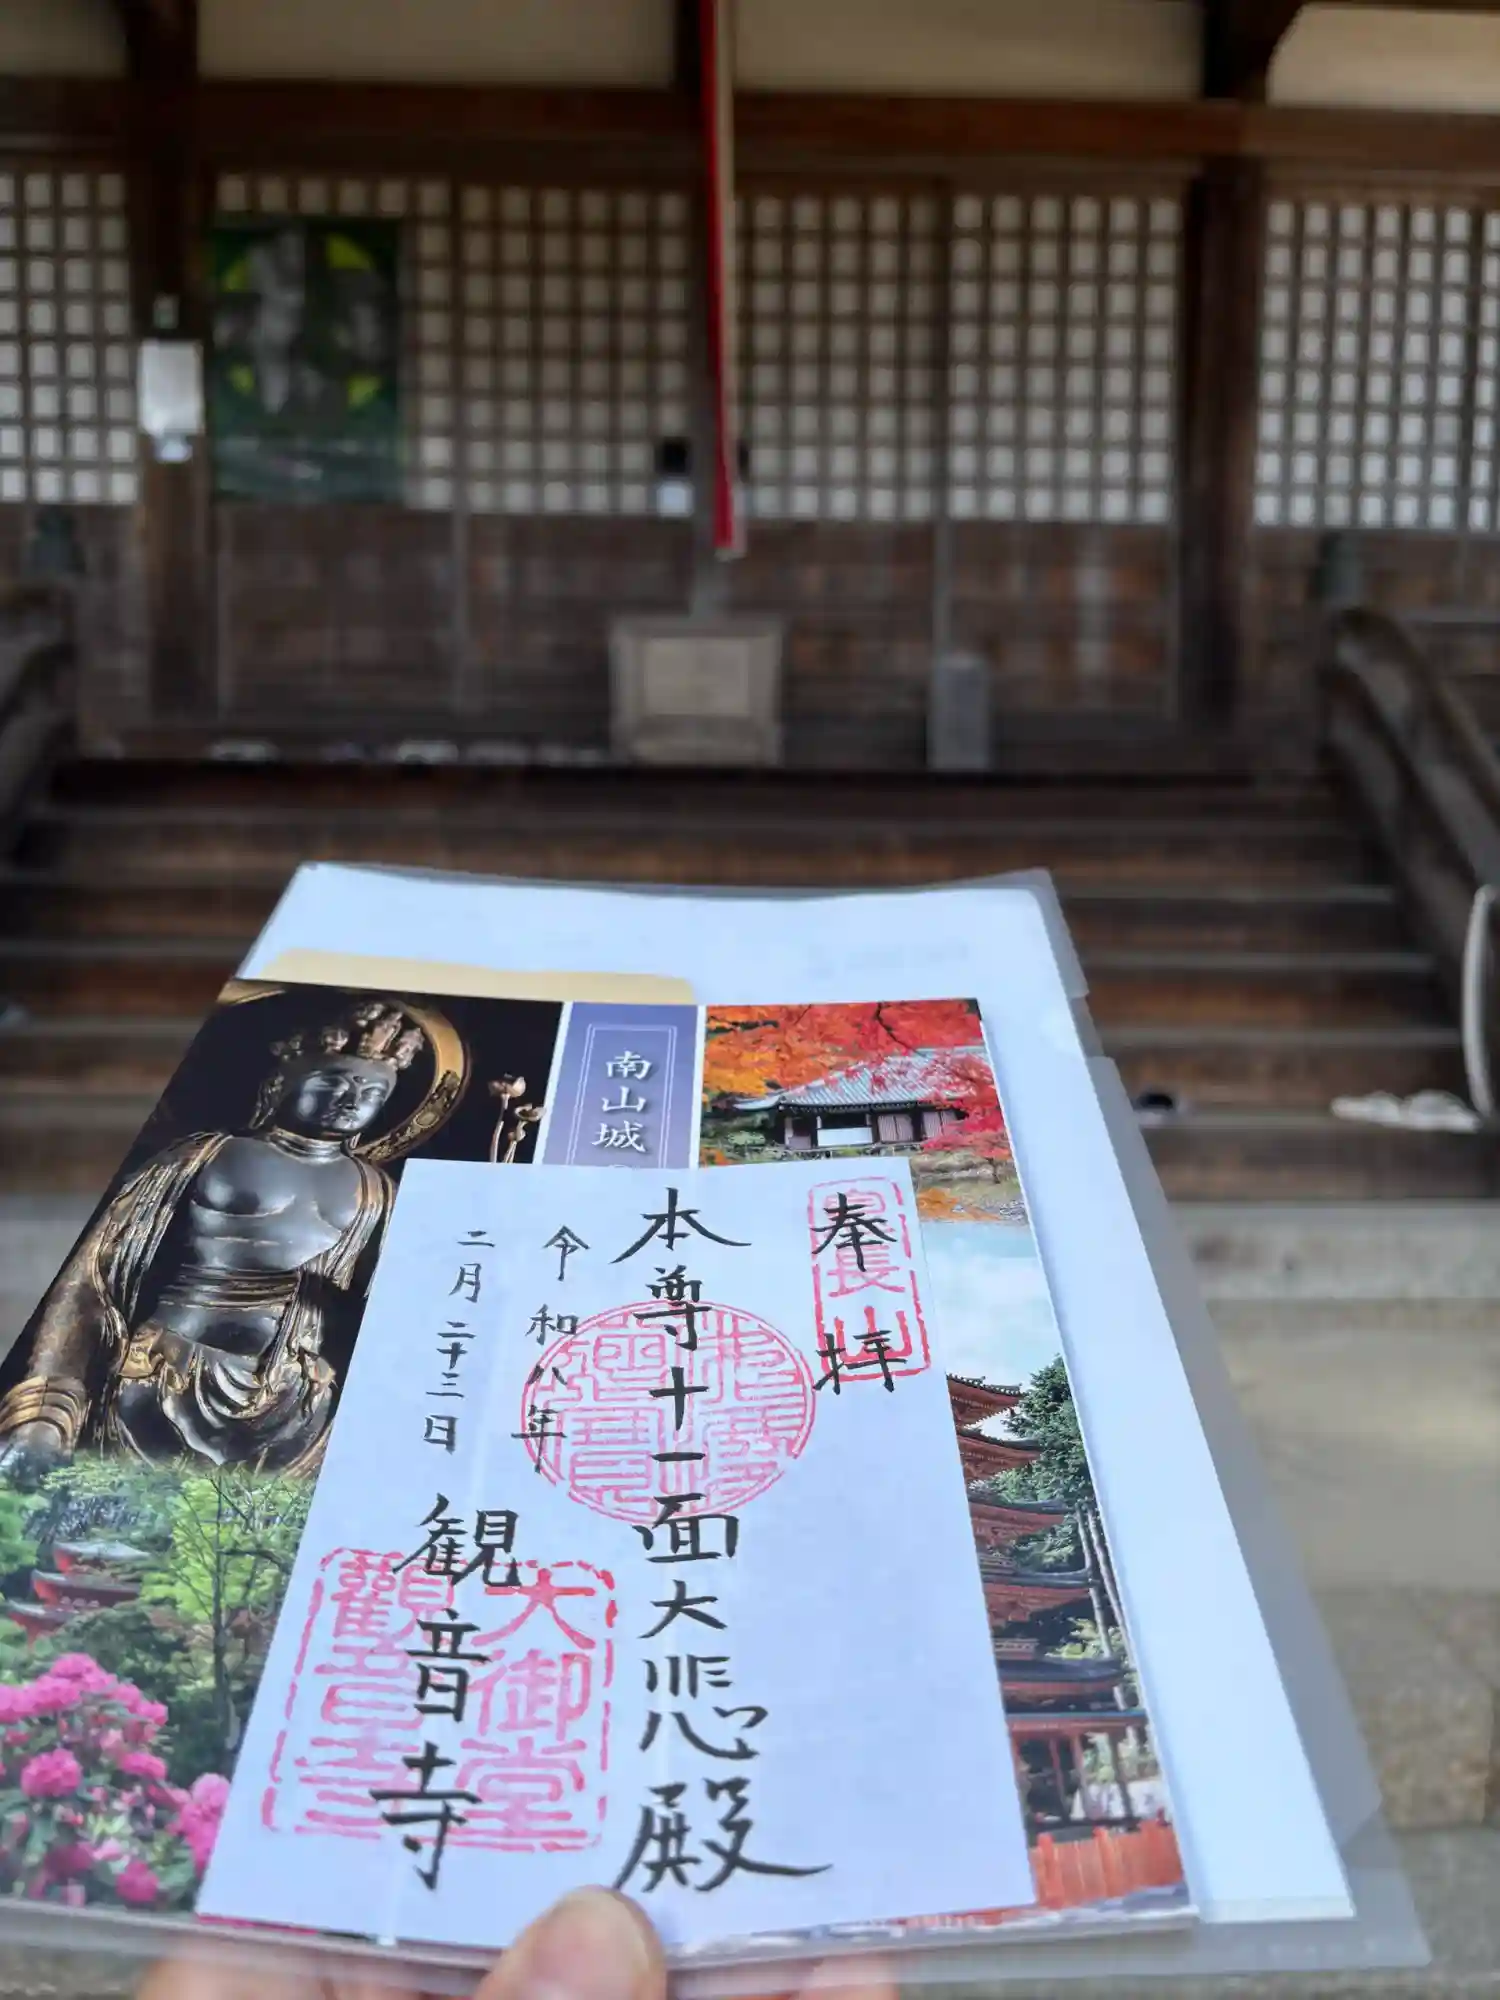 南山城
奉拝
本尊十一面大悲殿
令和八年
二月二十三日
観音寺
息長山
大御堂
觀音寺